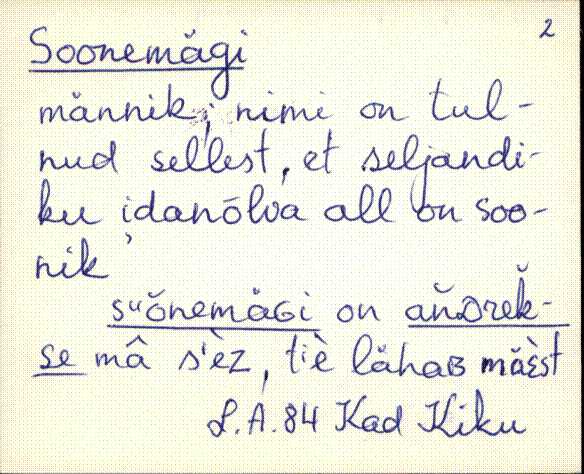 2
Soonemägi
männik; nimi on tul-
nud sellest, et seljandi-
ku idanõlva all on soo-
nik
sᵘŏnemäɢi on aňᴅrĕk-
se mâ s'èz, tⁱè lähaʙ mäèst
L.A. 84 Kad Kiku